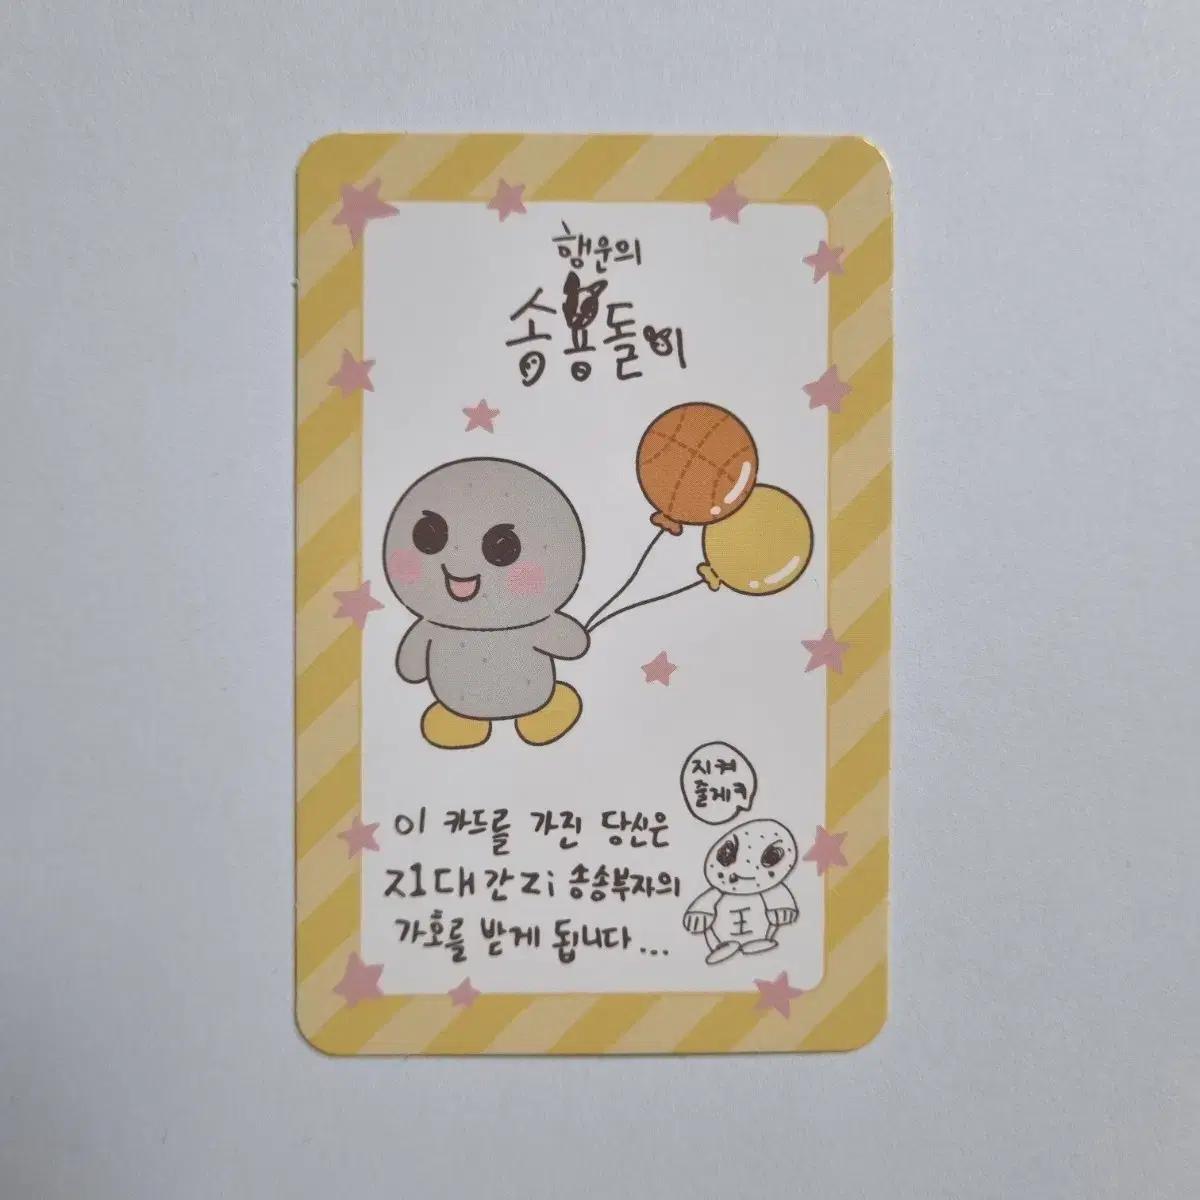 행운의
송용돌이
지켜
줄게ㅋ
이 카드를 가진 당신은
지대간zi 송송부자의
가호를 받게 됩니다...
王